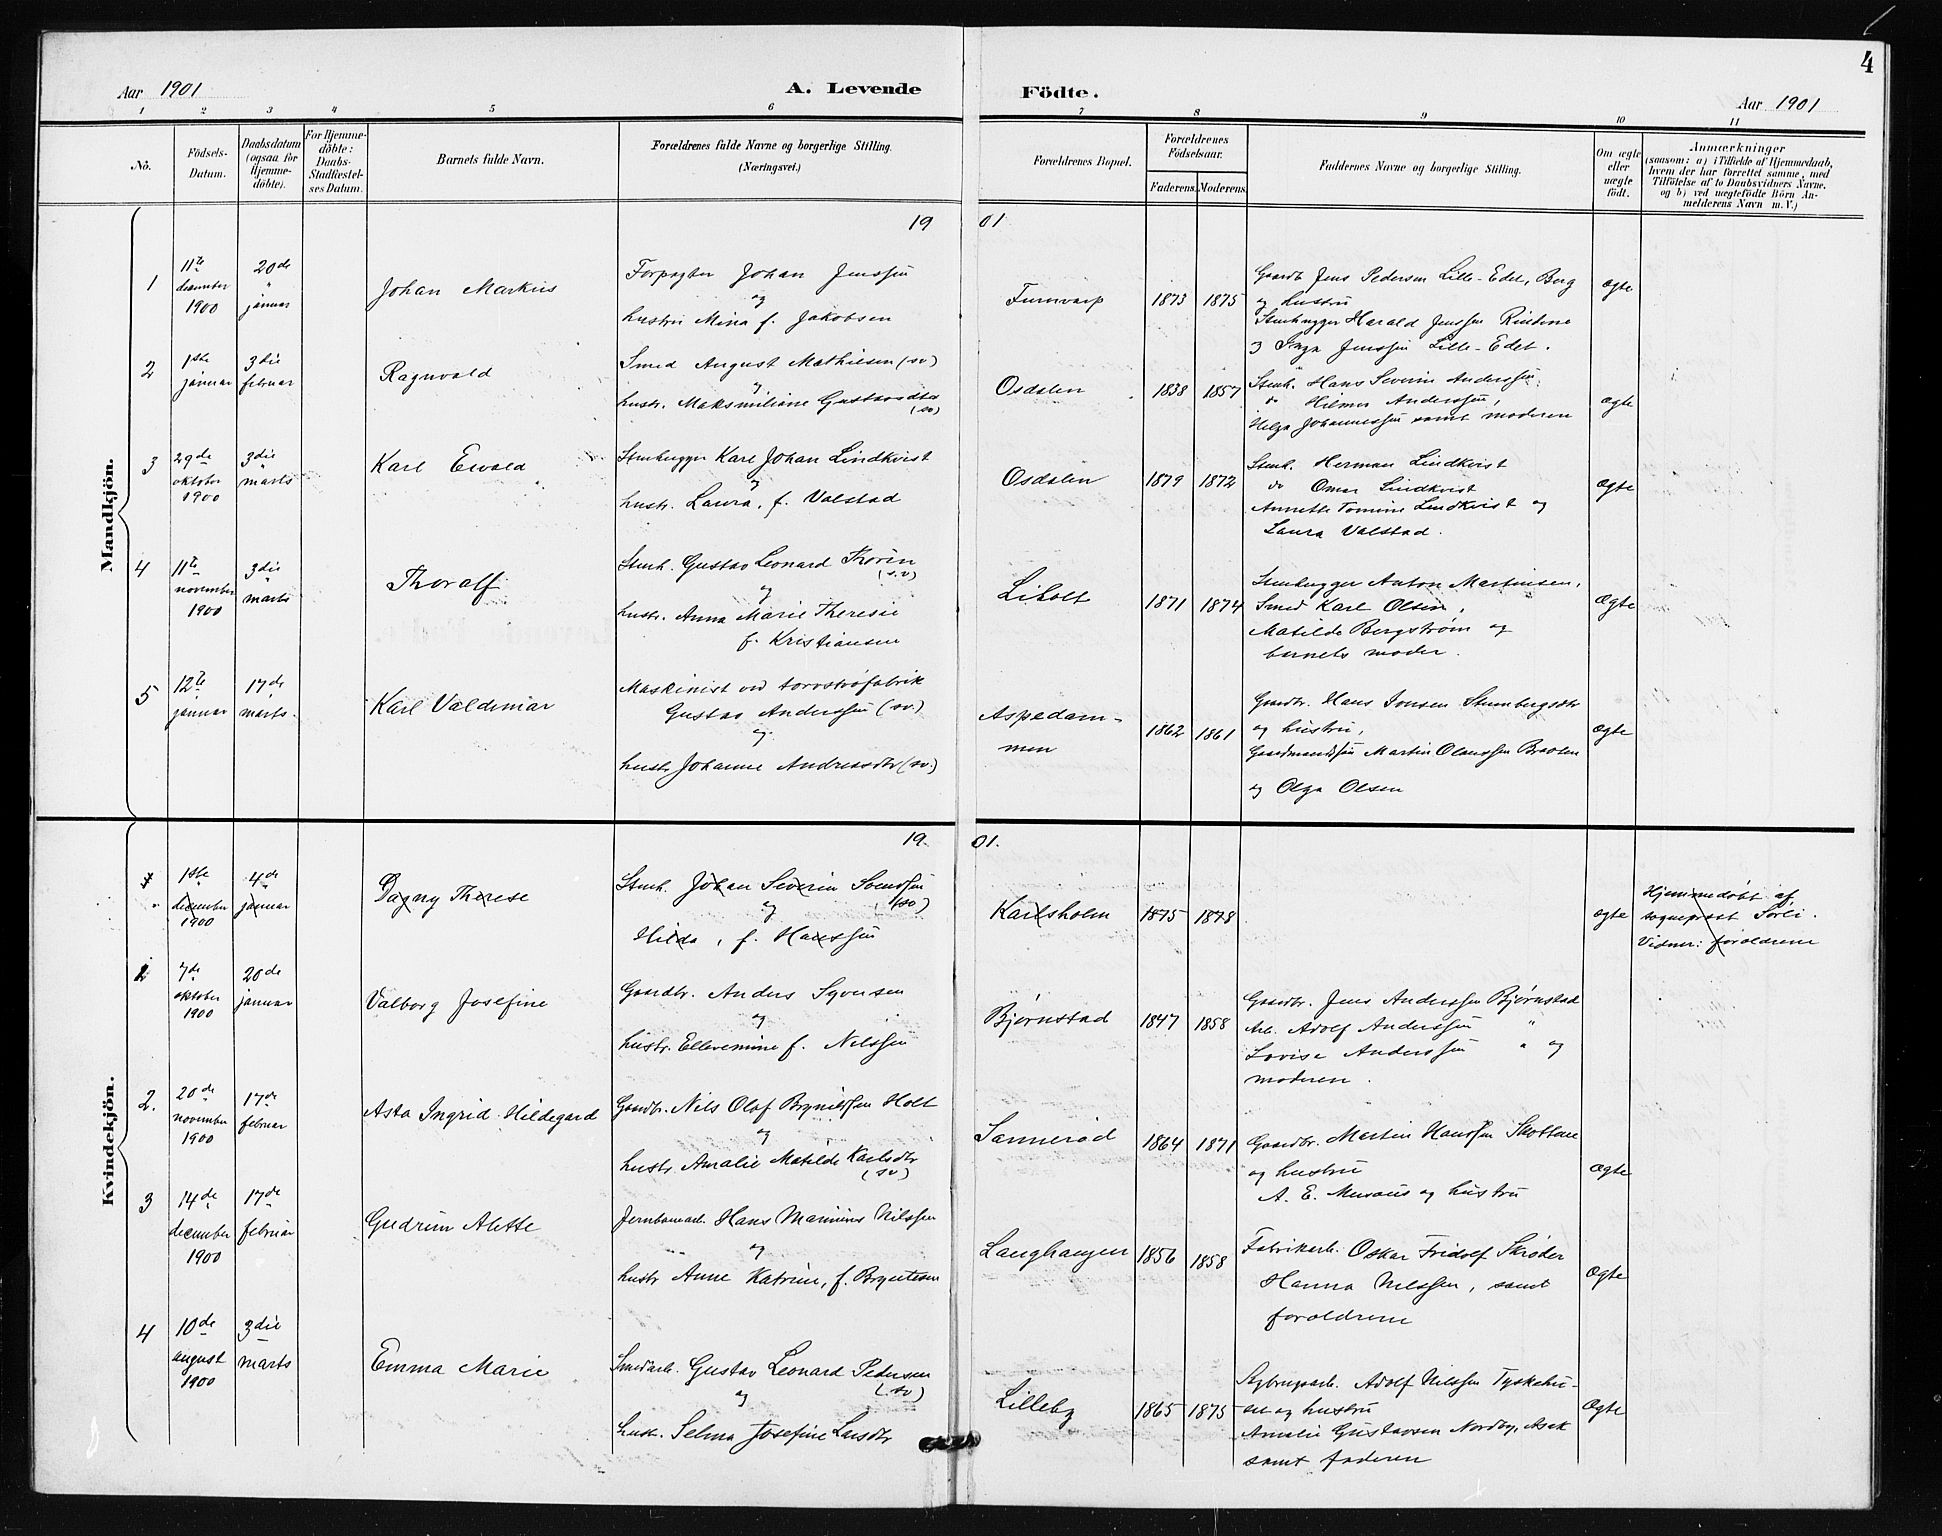 4
Aar 1901
A. Levende
Födte.
Aar 1901
1 2 3 4 5 6 7 8 9 10 11
No.
Födsels-
Datum.
Daabsdatum
(ogsaa for
Hjemme-
döbte).
For Hjemme-
döbte:
Daabs-
Stadfæstel-
ses Datum.
Barnets fulde Navn.
Forældrenes fulde Navne og borgerlige Stilling.
(Næringsvei.)
Forældrenes Bopæl.
Forældrenes
Födselsaar.
Faderens. Moderens.
Faddernes Navne og borgerlige Stilling.
Om ægte
eller
uægte
födt.
Anmærkninger
(saasom: a) i Tilfælde af Hjemmedaab,
hvem der har forrettet samme, med
Tilföielse af to Daabsvidners Navne.
og b) ved uægtefödte Börn An-
melderens Navn m.V.)
Mandkjön.
19
01
1
11te
december
1900
20de
januar
Johan Markus
Forpagter Johan Jenssen
og
hustru Mina f. Jakobsen
1873 1875
Gaardb. Jens Pedersen Lille-Edet, Berg
og hustru
Stenhugger Harald Jenssen
Inga Jenssen Lille-Edet.
ægte
2
1ste
januar
3die
februar
Ragnvald
Smed August Mathiesen (sv)
og
hustr. Maksmiliane Gustavsdtr
(sv)
Osdalen
1838 1857
Stenh. Hans Severin Anderssen,
do Hilmer Anderssen,
Helga Johannessen samt moderen
ægte
3
29de
oktober
1900
3die
marts
Karl Ewald
Stenhugger Karl Johan Lindkvist
og
hustr. Laura, f. Valstad
Osdalen
1879 1872
Stenh. Herman Lindkvist
do Omar Lindkvist
Annette Tomine Lindkvist og
Laura Valstad.
ægte
4
11te
november
1900
3die
marts
Thoralf
Stenh. Gustav Leonard Thorin
(sv)
og
hustr. Anna Marie Theresie
f. Kristiansen
Liholt
1871 1874
Stenhugger Anton Martinsen,
Smed Karl Olsen,
Matilde Bergstrøm og
barnets moder.
ægte
5
12te
januar
17de
marts.
Karl Valdemar
Maskinist ved torvstrøfabrik
Gustav Anderssen (sv.)
og
hustr Johanne Andreasdtr (sv.)
Aspedam-
men
1862 1861
Gaardbr. Hans Jonsen
og hustru,
Gaardmandssøn Martin Olaussen Braaten
og Olga Olsen
ægte
Kvindekjön.
19.
01.
1
1ste
december
1900
4de
januar
Dagny Therese
Stenh. Johan Severin Svenssen
(sv)
og
Hilda, f. Hanssen
Karlsholm
1875 1878
ægte
Hjemmedøbt af
sogneprest Sørli.
Vidner: forældrene
1
7de
oktober
1900
20de
januar
Valborg Josefine
Gaardbr. Anders Syversen
og
hustr. Ellevemine f. Nilssen
Bjørnstad
1847 1858
Gaardbr. Jens Anderssen Bjørnstad
Arb. Adolf Anderssen "
Lovise Anderssen " og
moderen.
2.
20de
november
1900
17de
februar
Asta Ingrid Hildegard
Gaardbr. Nils Olaf Brynildssen Holt
og
hustr. Amalie Matilde Karlsdtr
(sv)
Sannerød
1864 1871
Gaardbr. Martin Hanssen Skottene
og hustru
A. E. Muraus og hustru
ægte
3
14de
december
1900
17de
februar
Gudrun Alette
Jernbanearb. Hans Marinius Nilssen
og
hustr Anne Katrine, f. Bryntesen
Langhaugen
1856 1858
Fabrikarb. Oskar Fridolf Skrøder
Hanna Nilssen, samt
forældrene
ægte
4
10de
august
1900
3die
marts
Emma Marie
Smedarb. Gustav Leonard Pedersen
(sv)
og
hustr. Selma Josefine Larsdtr
Lilleby
1865 1875
Sagbrugsarb. Adolf Nilssen Tyskehu-
set og hustru
Amalie Gustavsen Nordby, Asak
samt faderen
ægte